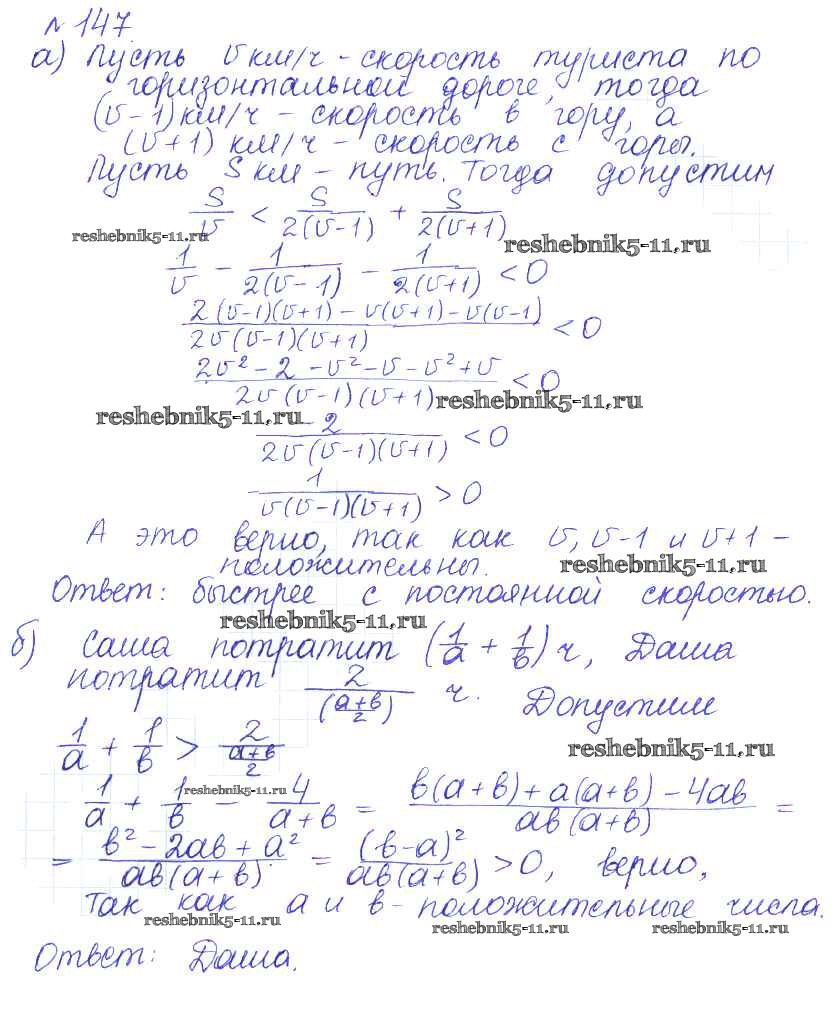 № 147.
а) Пусть v км/ч - скорость туриста по
горизонтальной дороге, тогда
(v-1) км/ч - скорость в гору, а
(v+1) км/ч - скорость с горы.
Пусть S км - путь. Тогда допустим
S/v < S/2(v-1) + S/2(v+1)
reshebnik5-11.ru reshebnik5-11.ru
1/v - 1/2(v-1) - 1/2(v+1) < 0
2(v-1)(v+1) - v(v+1) - v(v-1) / 2v(v-1)(v+1) < 0
2v² - 2 - v² - v - v² + v / 2v(v-1)(v+1) < 0
reshebnik5-11.ru reshebnik5-11.ru
-2 / 2v(v-1)(v+1) < 0
1 / v(v-1)(v+1) > 0
А это верно, так как v, v-1 и v+1 -
положительны. reshebnik5-11.ru
Ответ: быстрее с постоянной скоростью.
reshebnik5-11.ru
б) Саша потратит (1/a + 1/b) ч, Даша
потратит 2/((a+b)/2) ч. Допустим
1/a + 1/b > 2/((a+b)/2) reshebnik5-11.ru
reshebnik5-11.ru
1/a + 1/b - 4/(a+b) = b(a+b) + a(a+b) - 4ab / ab(a+b) =
= b² - 2ab + a² / ab(a+b) = (b-a)² / ab(a+b) > 0, верно,
так как a и b - положительные числа.
reshebnik5-11.ru reshebnik5-11.ru reshebnik5-11.ru
Ответ: Даша.